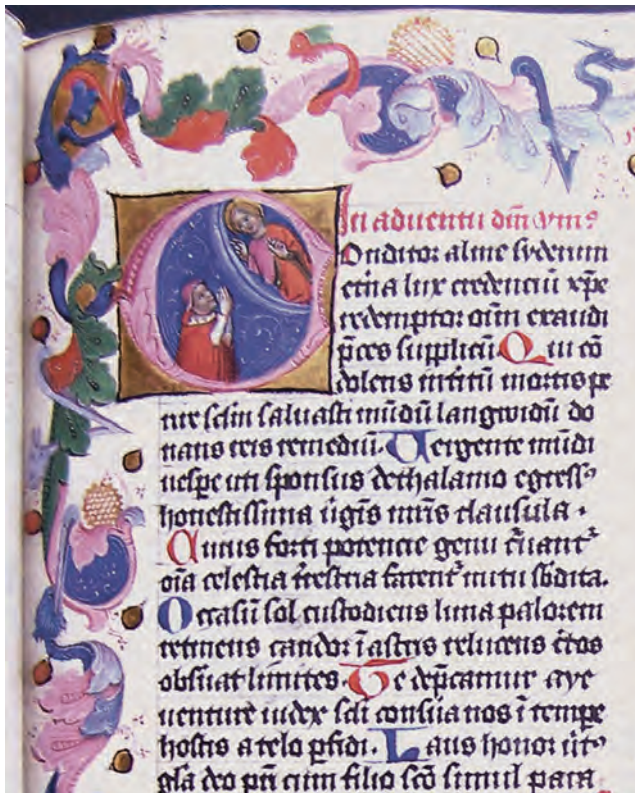 In aduentu dm̄ ymꝰ
Conditor alme syderum
et̄na lux credenciū xp̄e
redemptor oīm exaudi
p̄ces supplicū. Qui cō
dolens int̄itū mortis pe
rire sclm̄ saluasti mūdū langwidū do
nans reis remediū. Uergente mūdi
uesp̄e uti sponsus dethalamo egressꝰ
honestissima ūgīs mr̄is clausula.
Cuius forti potencie genu c̄uant᷑
oīa celestia t̄restria fatent᷑ nutu sb̄dita.
Occasū sol custodiens luna palorem
retinens candor ī astris relucens c̄tos
obs̄uat limites. Te dep̄camur aye
uenture iudex scl̄i cons̄ua nos ī temp̄e
hostis a telo p̄fidi. Laus honor ūtꝰ
gl̄a deo pr̄i cum filio sc̄o simul para